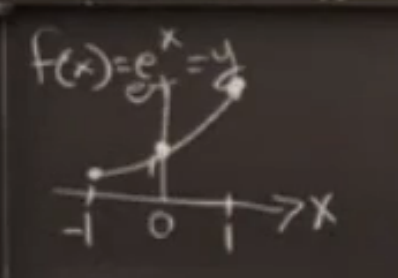 f(x)=e^x=y
e
1
-1 0 1 x